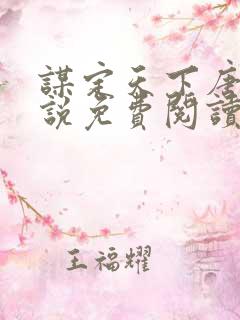 謀定天下唐
說免費閱讀
王福耀